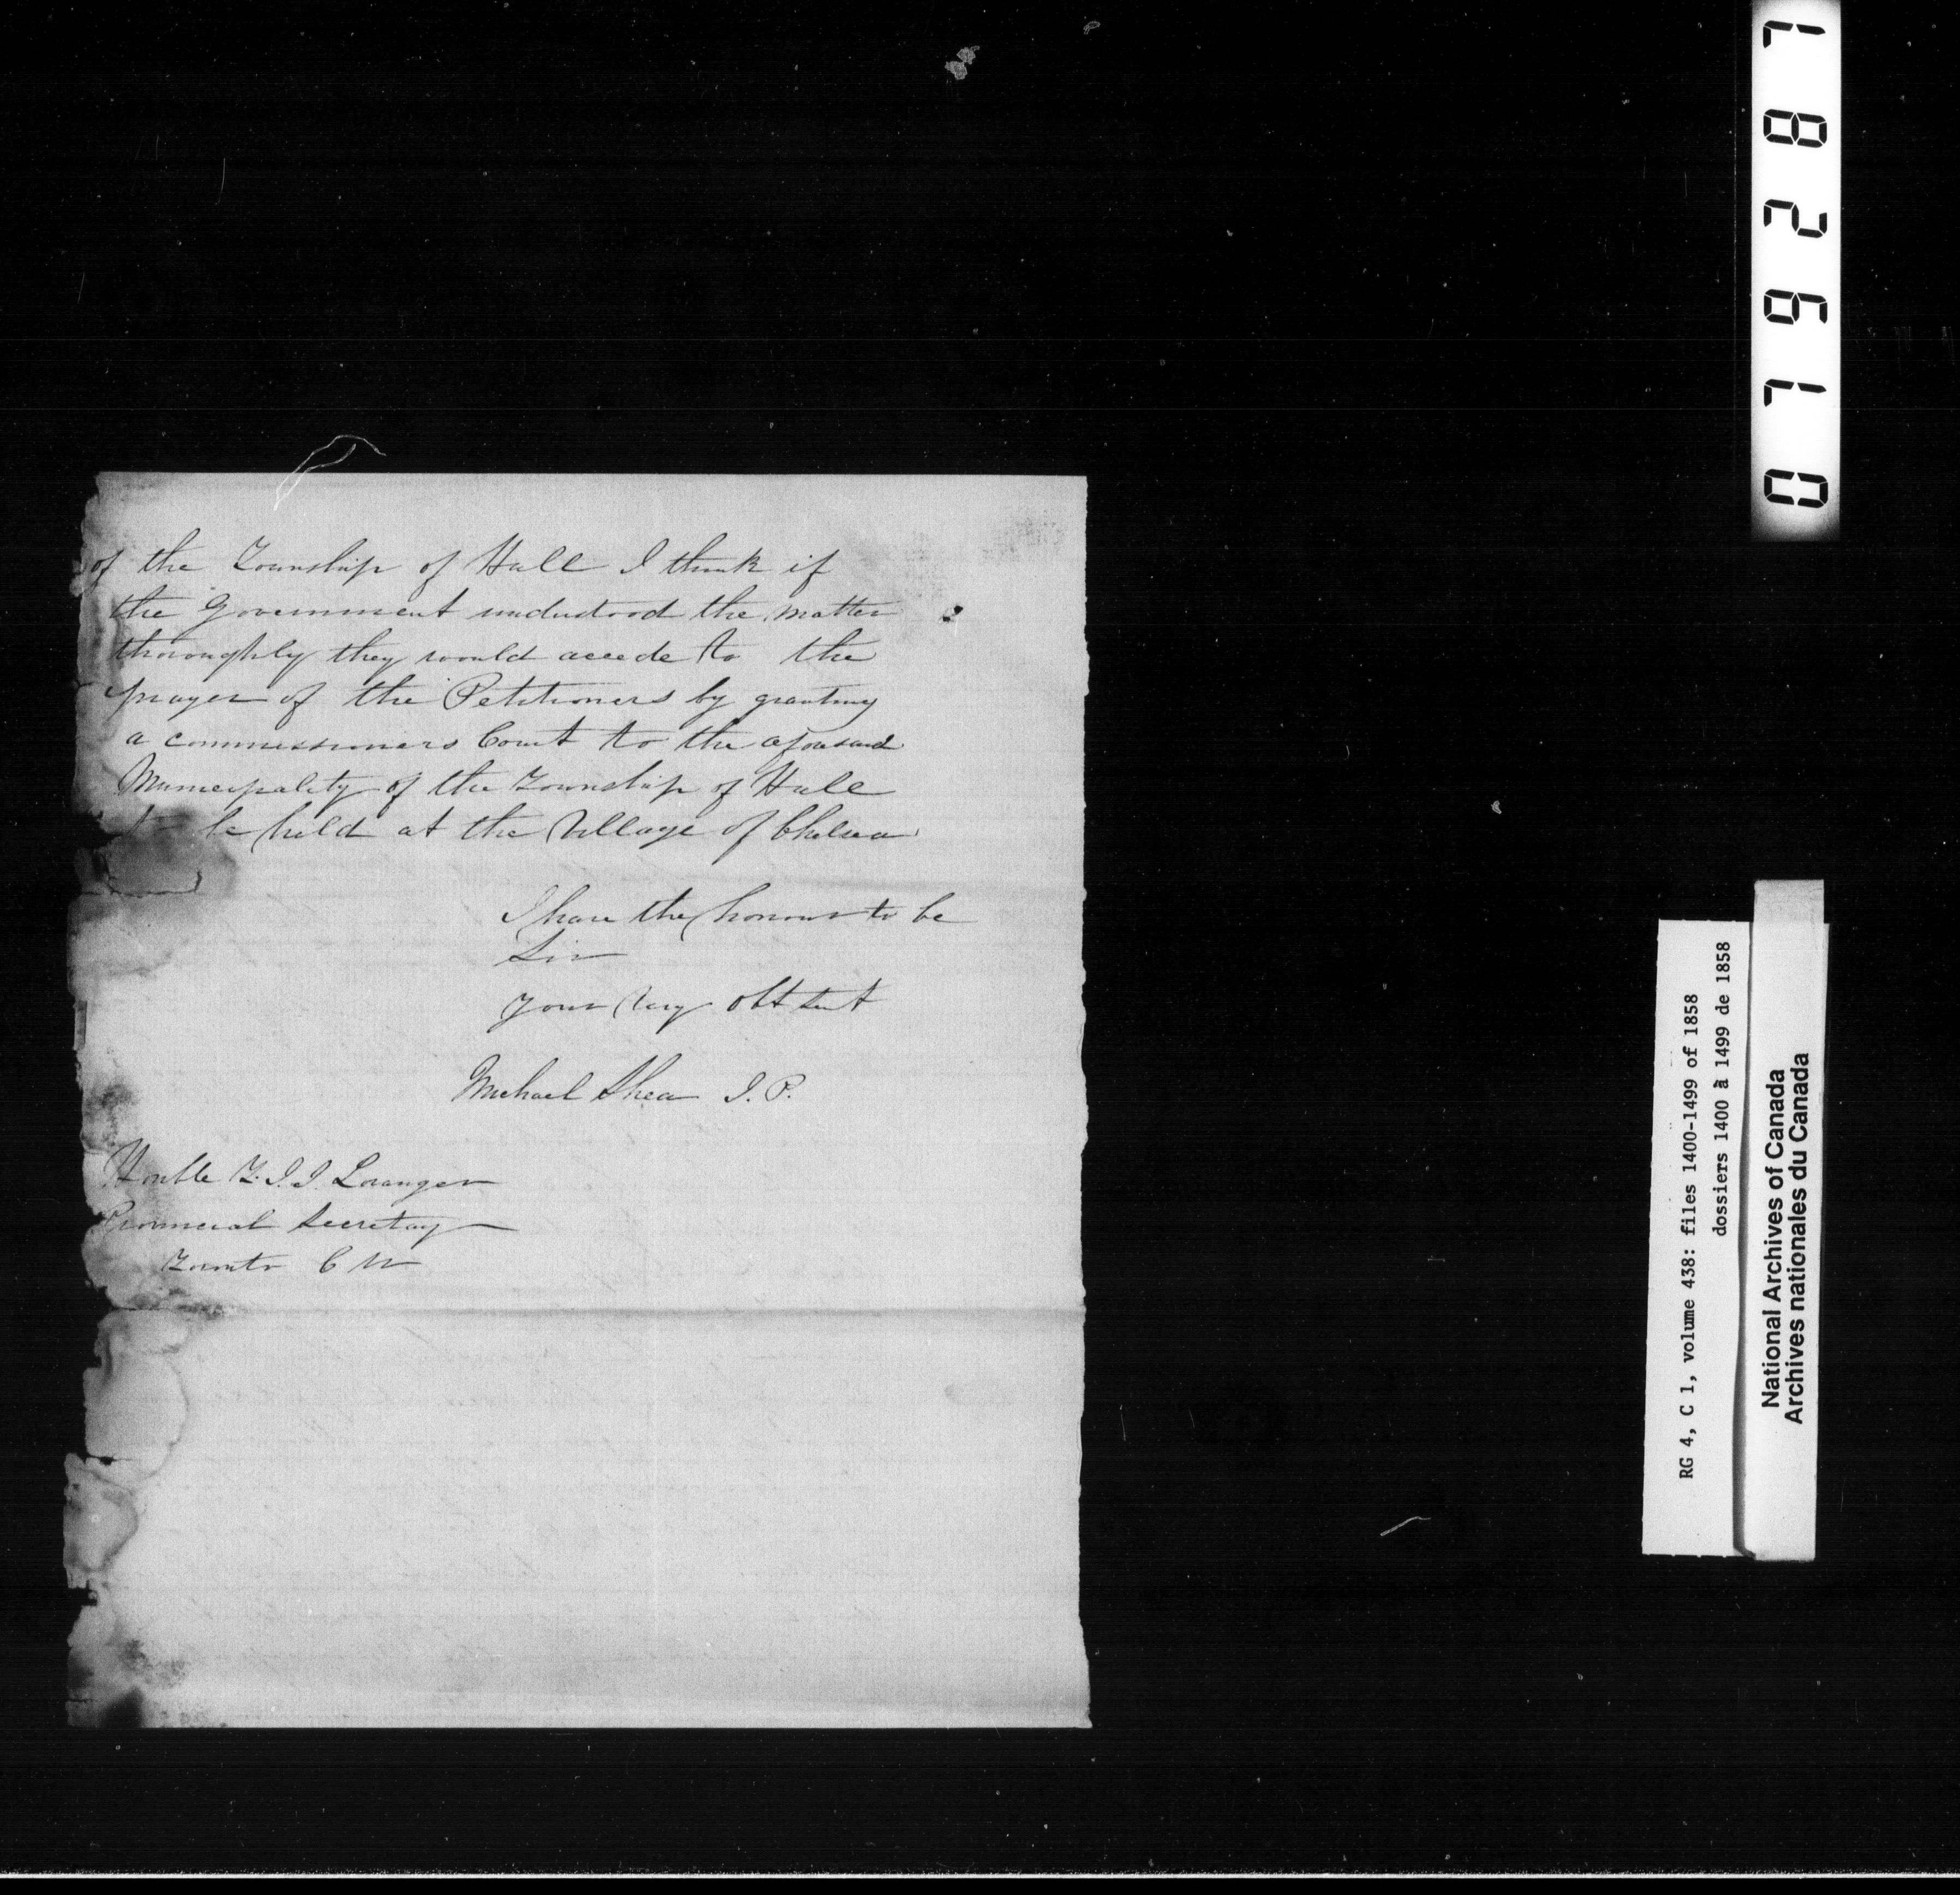 of the Township of Hull I think if
the Government understood the matter
thoroughly they would accede to the
prayer of the Petitioners by granting
a commissioners Court to the aforesaid
Municipality of the Township of Hull
to be held at the Village of Chelsea
I have the honour to be
Sir
your very obt
Michael Shea J. P.
Honble T. J. J. Loranger
Provincial Secretary
Toronto C W
RG 4, C 1, volume 438: files 1400-1499 of 1858
dossiers 1400 à 1499 de 1858
National Archives of Canada
Archives nationales du Canada